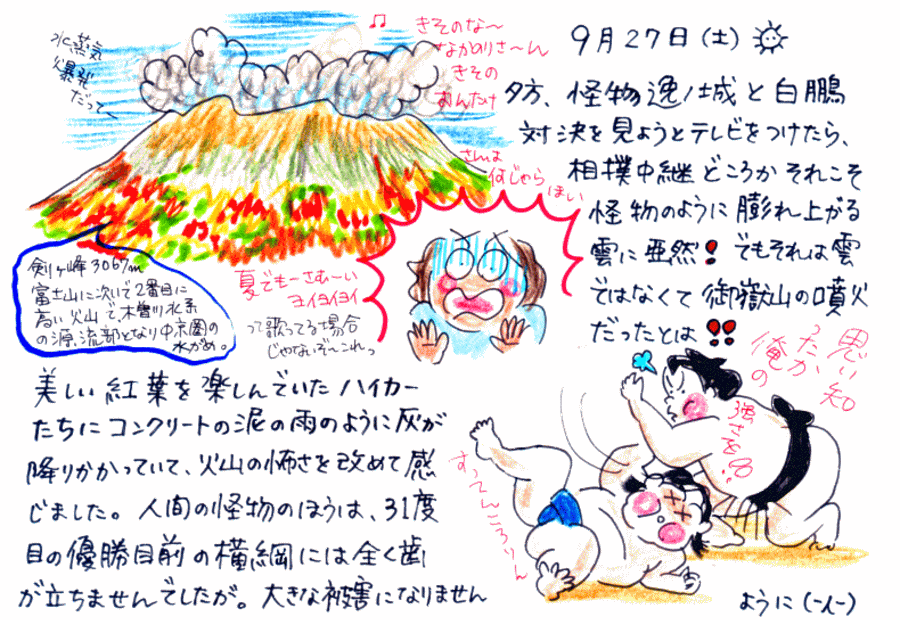 9月27日(土)
夕方、怪物逸ノ城と白鵬
対決を見ようとテレビをつけたら、
相撲中継どころかそれこそ
怪物のように膨れ上がる
雲に亜然！でもそれは雲
ではなくて御嶽山の噴火
だったとは!!
水蒸気
爆発
だって
♫ きそのな〜
なかのりさ〜ん
きその
おんたけ
さんは
何じゃら
ほい
夏でもーさむ〜い
ヨイヨイヨイ
って歌ってる場合
じゃないぞ〜これっ
剣ヶ峰3067m
富士山に次いで2番目に
高い火山で、木曽川水系
の源流部となり中京圏の
水がめ。
美しい紅葉を楽しんでいたハイカー
たちにコンクリートの泥の雨のように灰が
降りかかっていて、火山の怖さを改めて感
じました。人間の怪物のほうは、31度
目の優勝目前の横綱には全く歯
が立ちませんでしたが。大きな被害になりません
ように(-人-)
思い知
ったか、
俺の
強さを!
すってんころりん